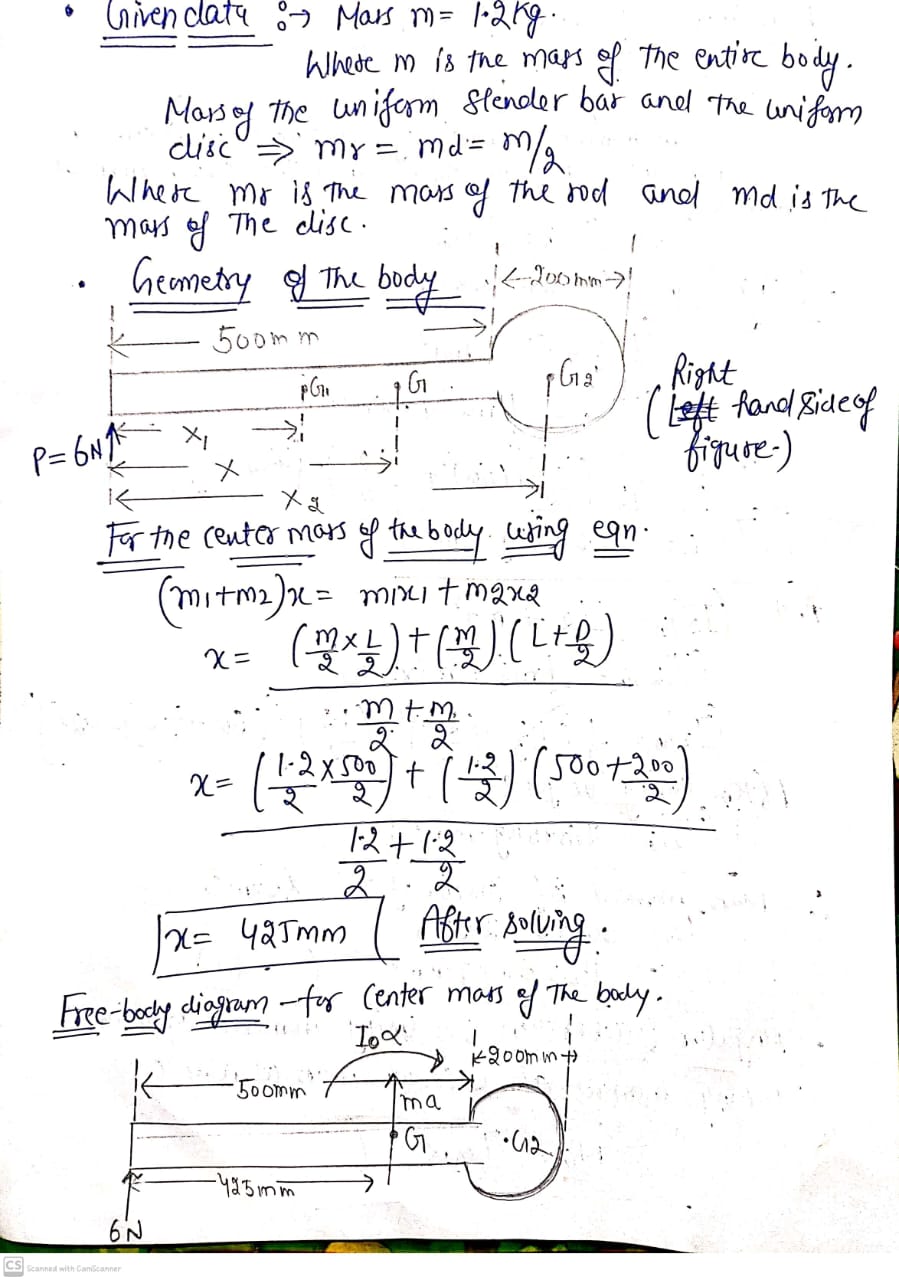 • Given data :→ Mass m = 1.2 kg.
Where m is the mass of the entire body.
Mass of the uniform slender bar and the uniform
disc ⇒ mr = md = m/2
Where mr is the mass of the rod and md is the
mass of The disc.
• Geometry of the body
←200mm→
500mm
G1 G G2
Right
(Left hand side of
figure-)
P=6N
x1
x
x2
For the center mass of the body using eqn.
(m1+m2)x = m1x1 + m2x2
x = (m/2 × L/2) + (m/2) (L + D/2)
m/2 + m/2
x = (1.2/2 × 500/2) + (1.2/2) (500 + 200/2)
1.2/2 + 1.2/2
x = 425mm After solving.
Free-body diagram - for Center mass of The body.
I0α
←200mm→
500mm
ma
G G2
425mm
6N
CS Scanned with CamScanner